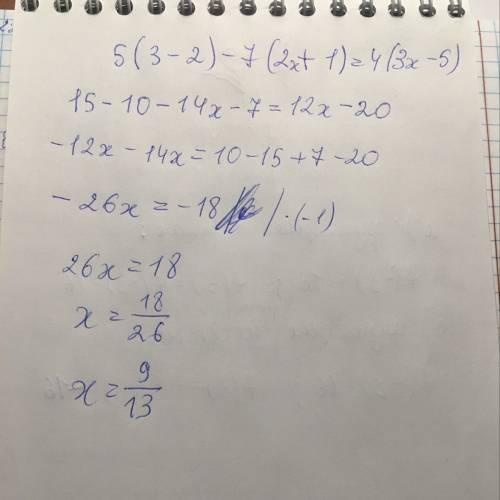 5(3-2)-7(2x+1)=4(3x-5)
15-10-14x-7=12x-20
-12x-14x=10-15+7-20
-26x=-18 /·(-1)
26x=18
x=18/26
x=9/13